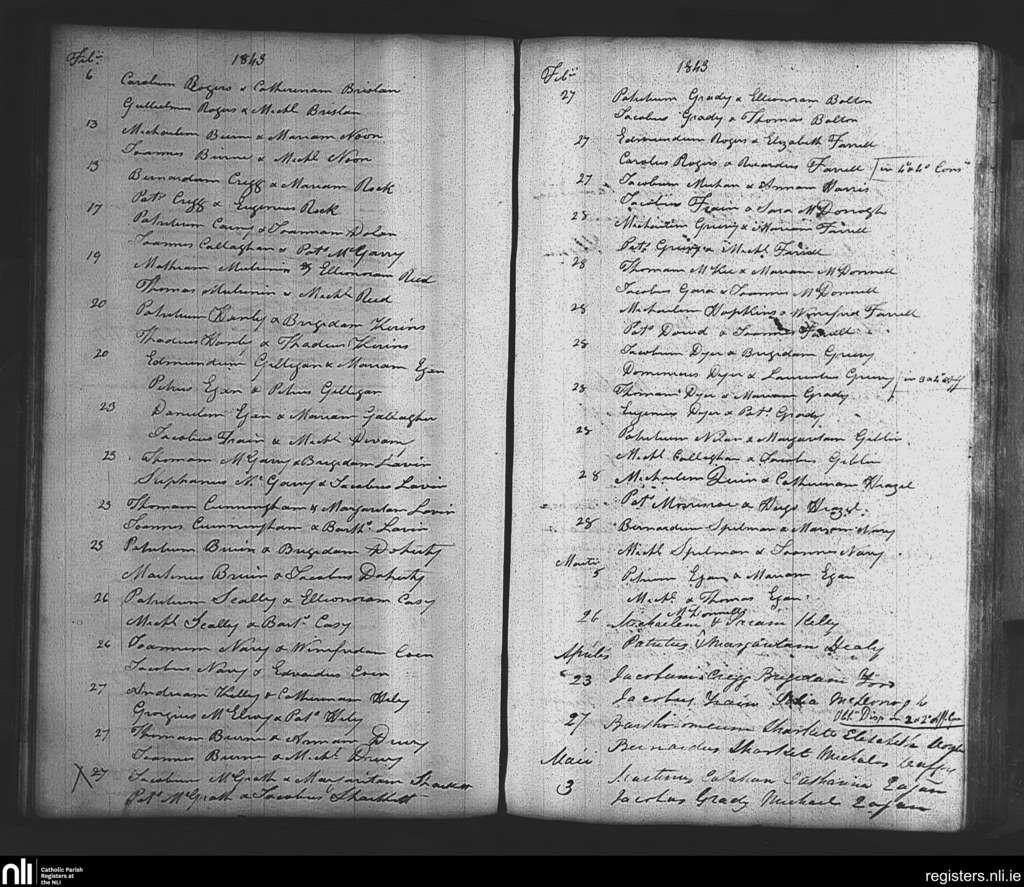 Feb. 1843
6 Carolum Rogers & Catherinam Brislan
Gulielmus Rogers & Michl Brislan
13 Michaelem Beirne & Mariam Noon
Joannes Beirne & Michl Noon
13 Bernardam Cregg & Mariam Rock
Patr Cregg & Eugenius Rock
17 Patritium & Joannam Dolan
Joannes Callaghan & Patr McGarry
19 Mathiam Mulrenin & Ellionoram Reid
Thomas Mulrenin & Michl Reid
20 Patritium Hanly & Brigidam Kerins
Thadeus Hanly & Thadeus Kerins
20 Edmundum Gilligan & Mariam Egan
Petrus Egan & Petrus Gilligan
23 Danielem Egan & Mariam Gallagher
Jacobus Frain & Michl
23 Thomam McGarry & Brigidam Lavin
Stephanus McGarry & Jacobus Lavin
23 Thomam Cunningham & Margaritam Lavin
Joannes Cunningham & Barthw Lavin
25 Patritium Bruin & Brigidam Doherty
Martinus Bruin & Jacobus Doherty
26 Patritium Scalley & Ellionoram Casy
Michl Scally & Bartw Casy
26 Joannem Nary & Winifridam Coen
Jacobus Nary & Edvardus Coen
27 Andream Kelley & Catherinam Hily
Georgius McElroy & Patr Hily
27 Thomam Beirne & Annam Drury
Joannes Beirne & Michl Drury
X 27 Jacobum McGrath & Margaritam Sharkett
Patr McGrath & Jacobus Sharkett
Feb. 1843
27 Patritium Grady & Ellionoram Bolton
Jacobus Grady & Thomas Bolton
27 Edmundum Rogers & Elizabeth Farrell
Carolus Rogers & Ricardus Farrell in 4o & 4o Cons
27 Jacobum Mehan & Annam Harris
Jacobus Frain & Sara McDonogh
28 Michaelem Greevy & Mariam Farrell
Patr Greevy & Michl Farrell
28 Thomam McKee & Mariam McDonnell
Jacobus Gara & Joannes McDonnell
28 Michaelem Hopkins & Winifred Farrell
Patr Dowd & Joannes Farrell
28 Jacobum Dyer & Brigidam Greevy
Dominicus Dyer & Laurentius Greevy in 3o & 4o
28 Thomam Dyer & Mariam Grady
Eugenius Dyer & Patr Grady
28 Patritium Nolan & Margaritam Giblin
Michl Callaghan & Jacobus Giblin
28 Michaelem Quin & Catherinam
Patr & Hugo
28 Bernardum Spelman & Mariam Nary
Michl Spelman & Joannes Nary
Martii
5 Petrum Egan & Mariam Egan
Michl & Thomas Egan
McDonnell
26 Michaelem & Mariam Kiley
Patritius & Margaritam Healy
Aprilis
23 Jacobum Cregg Brigidam
Jacobus Frain McDonogh
Obt. Disp. in 2o & 2o
27 Bartholomeum Sharkett Elizabeth
Bernardus Sharket Michalis
Maii
3 Martinus Calahan Catharina
Jacobus Grady Michael
nli
Catholic Parish
Registers at
the NLI
registers.nli.ie